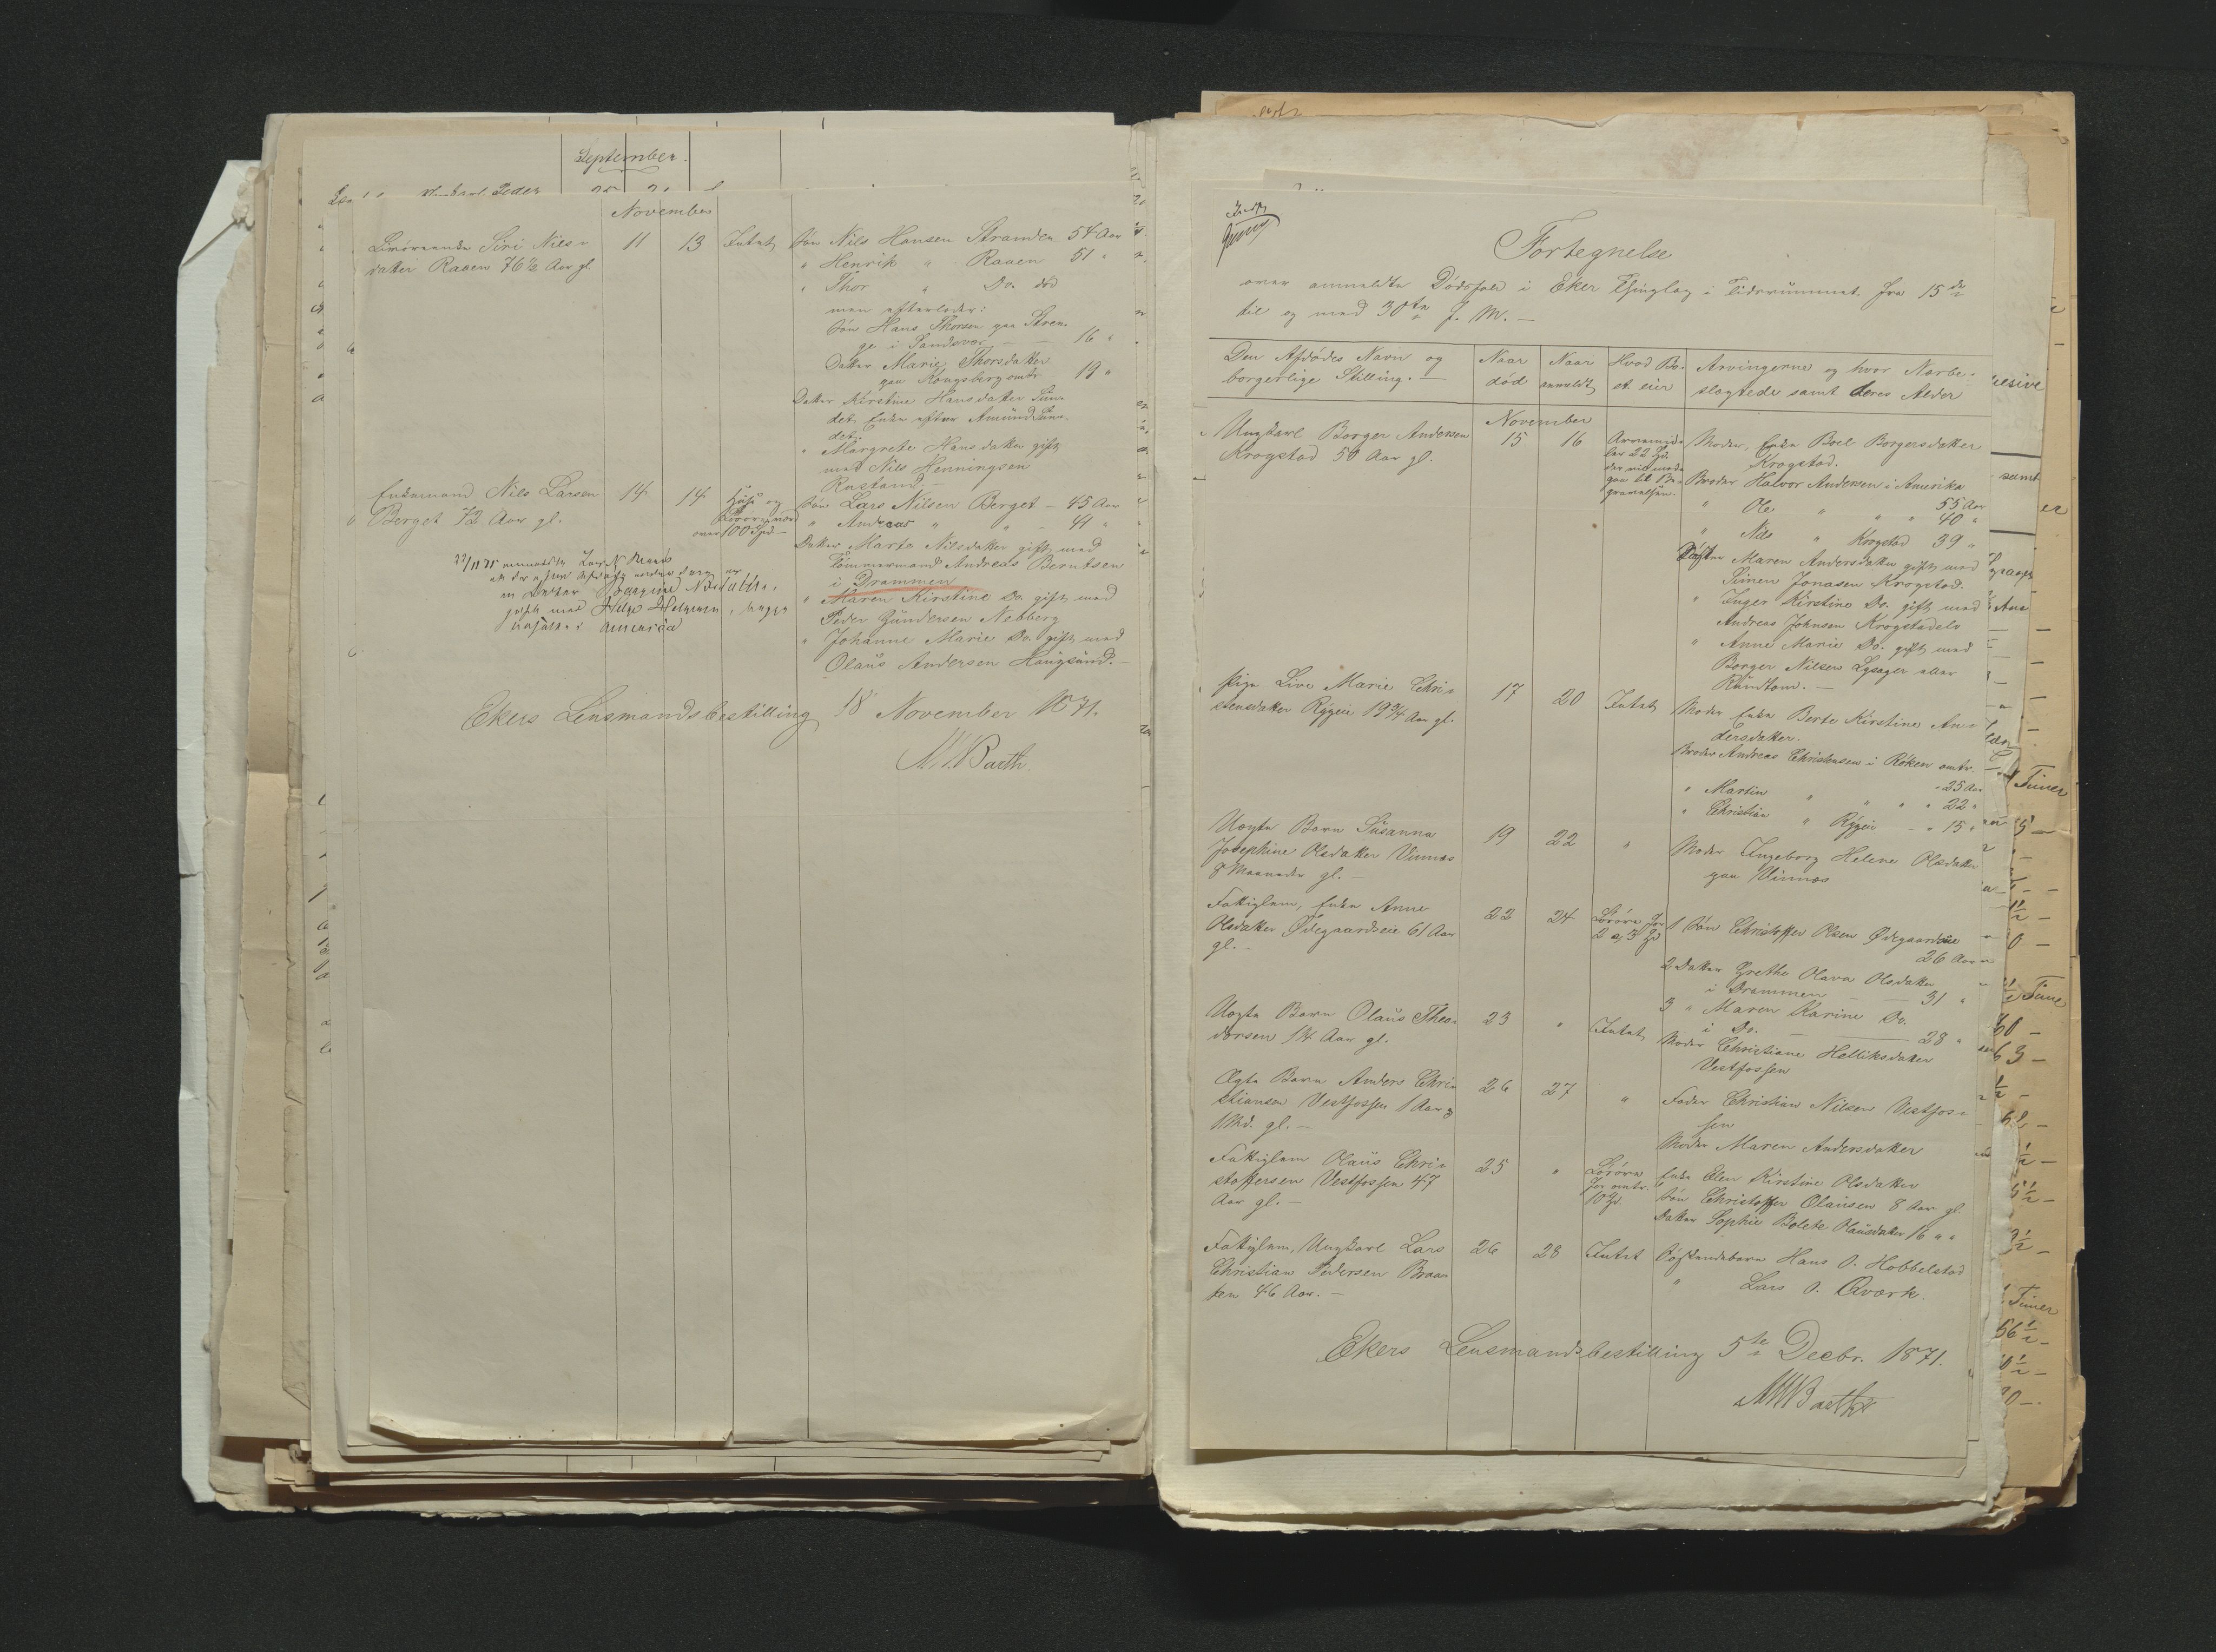 September.
Peder
November
Føderaadsenke Siri Nils-
datter Raaen 76 1/2 Aar gl.
11
13
Intet
Søn Nils Hansen Stranden 54 Aar
" Henrik " Raaen 51 "
" Thor " Do. død
men efterlader:
Søn Hans Thorsen paa Stren-
ge i Sandsvær — 16 "
Datter Marie Thorsdatter
paa Kongsberg omtr. 19 "
Datter Kirstine Hansdatter Sun-
det, Enke efter Amund Sun-
det.
" Margrete Hansdatter gift
med Nils Henningsen
Rustand.—
Enkemand Nils Larsen
Berget 72 Aar gl.
14
14
Huse og
Løsøre
over 100 Spd —
Søn Lars Nilsen Berget — 45 Aar
" Andreas " " — 41 "
Datter Marte Nilsdatter gift med
Tømmermand Andreas Berntsen
i Drammen
" Maren Kirstine Do. gift med
Peder Gundersen Nebberg
" Johanne Marie Do. gift med
Olaus Andersen Haugsund.—
en Datter Nilsdatter,
gift med Helge Helgesen, begge
bosatte i Amerika
Ekers Lensmandsbestilling 18 November 1871.
Barth.
Fortegnelse
over anmeldte Dødsfald i Eker Thinglag i Tidsrummet fra 15 de
til og med 30 te f. M. —
Den Afdødes Navn og
borgerlige Stilling. —
Naar
død
Naar
anmeldt
Hvad Bo-
et eier
Arvingerne og hvor Nærbe-
slægtede samt deres Alder
November
Ungkarl Borger Andersen
Krogstad 50 Aar gl.
15
16
Arvemid-
ler 22 Spd.
der vil med-
gaa til Be-
gravelsen.
Moder, Enke Boel Borgersdatter
Krogstad.
Broder Halvor Andersen i Amerika
55 Aar
" Ole " " " 40 "
" Nils " Krogstad 39 "
Søster Maren Andersdatter gift med
Simen Jonasen Krogstad.
" Inger Kirstine Do. gift med
Andreas Johnsen Krogstadelv
" Anne Marie Do. gift med
Borger Nilsen Lysager eller
Rundtom.—
Pige Live Marie Chri-
stensdatter Rygeie 19 3/4 Aar gl.
17
20
Intet
Moder Enke Berte Kirstine An-
dersdatter.
Broder Andreas Christensen i Røken omtr.
25 Aar
" Martin " " " " 22 "
" Christian " Rygeie — " 15 "
Uægte Barn Susanna
Josephine Olsdatter Vinnæs
8 Maaneder gl. —
19
22
"
Moder Ingeborg Helene Olsdatter
paa Vinnæs
Fattiglem, Enke Anne
Olsdatter Ødegaardseie 61 Aar
gl. —
22
24
Løsøre for
2 a 3 Spd
1 Søn Christoffer Olsen Ødegaardseie
26 Aar
2 Datter Grethe Olava Olsdatter
i Drammen — 31 "
3 " Maren Karine Do.
i Do. — 28 "
Uægte Barn Olaus Theo-
dorsen 1 1/4 Aar gl.
23
"
Intet
Moder Christiane Helliksdatter
Vestfossen
Ægte Barn Anders Chri-
stiansen Vestfossen 1 Aar og
1 Md. gl. —
26
27
"
Fader Christian Nilsen Vestfos-
sen
Moder Maren Andersdatter
Fattiglem Olaus Chri-
stoffersen Vestfossen 47
Aar gl. —
25
"
Løsøre
for omtr.
10 Spd.
Enke Elen Kirstine Olsdatter
Søn Christoffer Olausen 8 Aar gl.
Datter Sophie Bolete Olausdatter 16 " "
Fattiglem, Ungkarl Lars
Christian Pedersen Braa-
ten 46 Aar. —
26
28
Intet
Søskendebarn Hans O. Hobbelstad
" Lars O. Qværk.
Ekers Lensmandsbestilling 5 te Decbr. 1871.
Barth